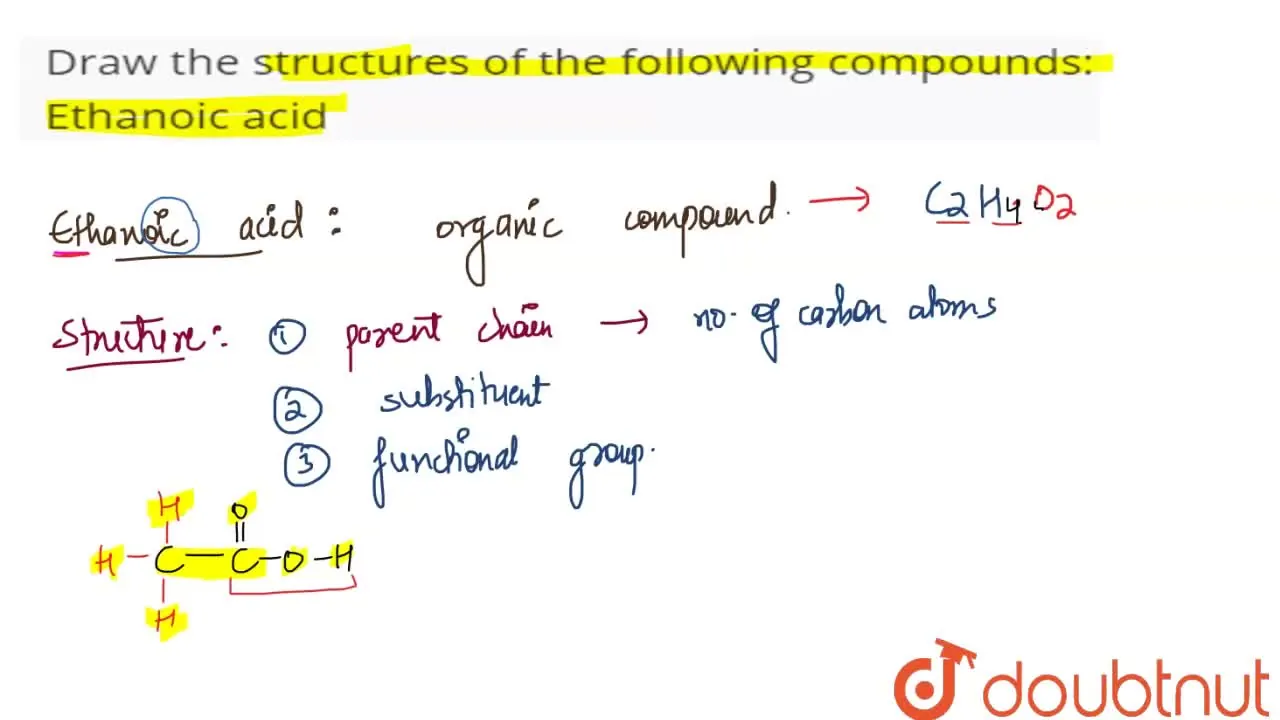 Draw the structures of the following compounds:
Ethanoic acid
Ethanoic acid : organic compound. → C2H4O2
Structure : ① parent chain → no. of carbon atoms
② substituent
③ functional group.
H O
H - C - C - O - H
H
doubtnut